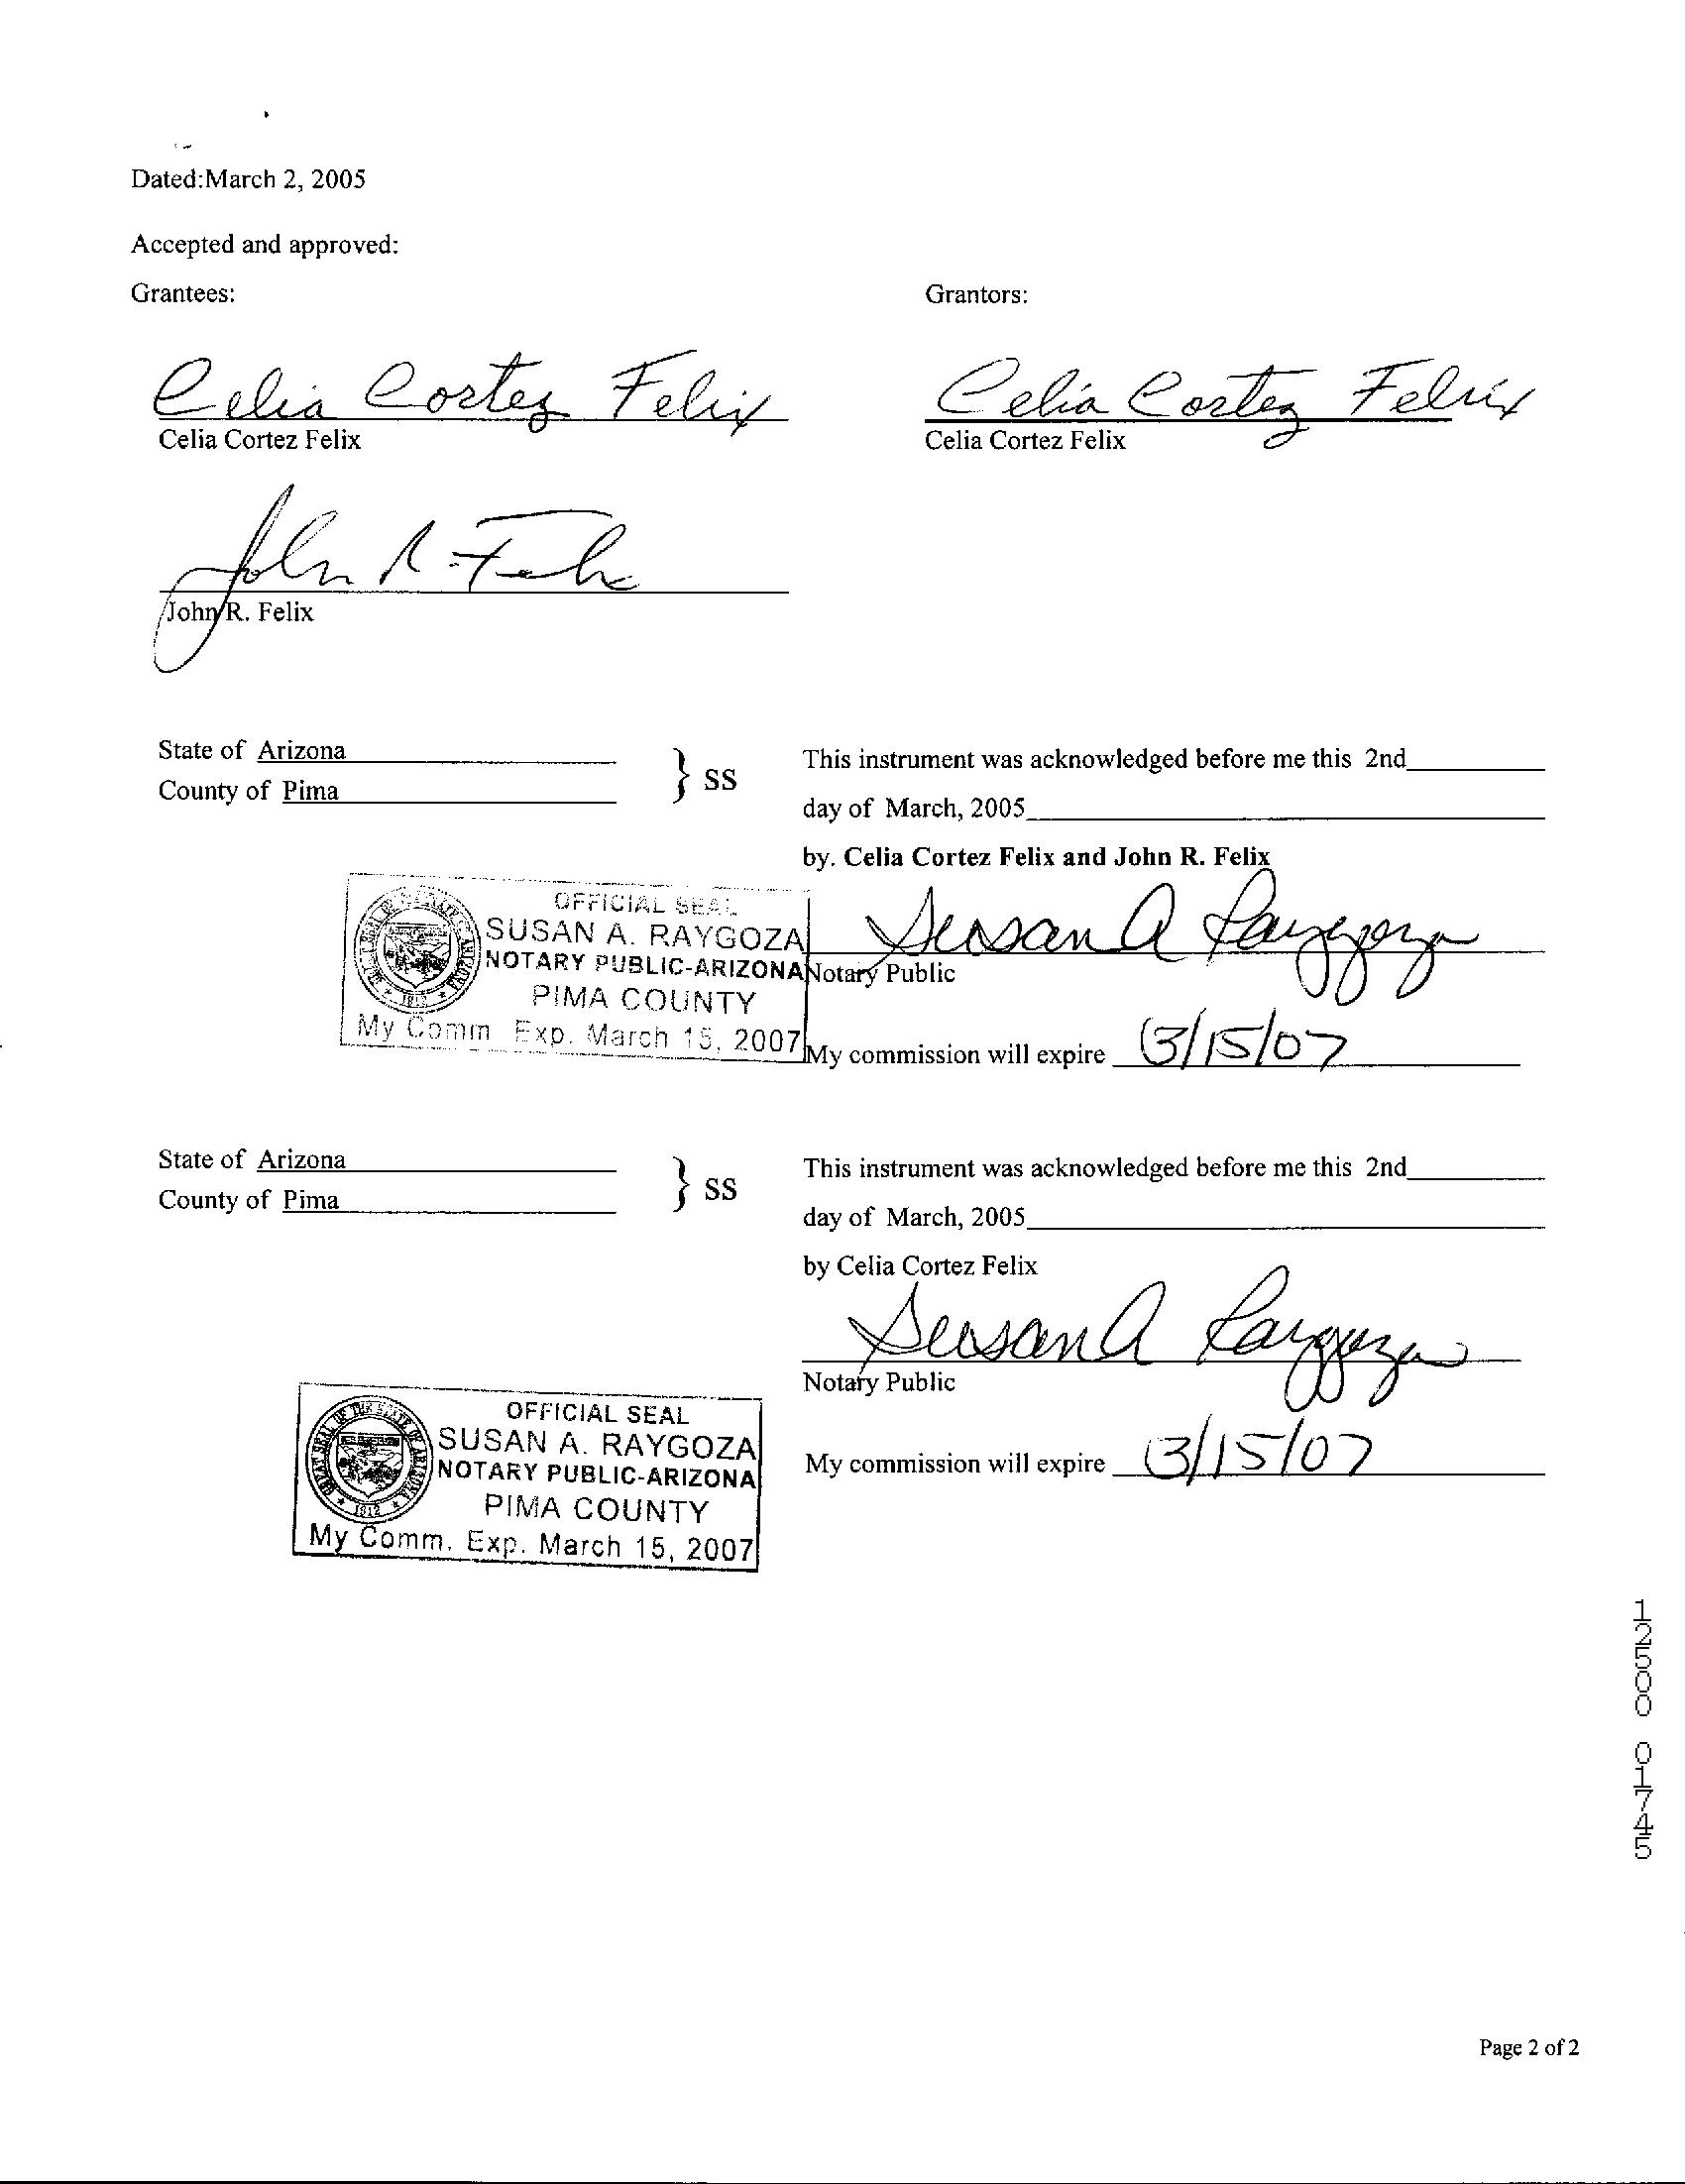 Dated:March 2, 2005
Accepted and approved:
Grantees:
Grantors:
Celia Cortez Felix
Celia Cortez Felix
Celia Cortez Felix
Celia Cortez Felix
John R. Felix
John R. Felix
State of Arizona
County of Pima
} SS
This instrument was acknowledged before me this 2nd
day of March, 2005
by. Celia Cortez Felix and John R. Felix
OFFICIAL SEAL
SUSAN A. RAYGOZA
NOTARY PUBLIC-ARIZONA
PIMA COUNTY
My Comm Exp. March 15, 2007
Susan A Raygoza
Notary Public
My commission will expire 3/15/07
State of Arizona
County of Pima
} SS
This instrument was acknowledged before me this 2nd
day of March, 2005
by Celia Cortez Felix
Susan A Raygoza
Notary Public
My commission will expire 3/15/07
GREAT SEAL OF THE STATE OF ARIZONA
1912
OFFICIAL SEAL
SUSAN A. RAYGOZA
NOTARY PUBLIC-ARIZONA
PIMA COUNTY
My Comm. Exp. March 15, 2007
12500 01745
Page 2 of 2